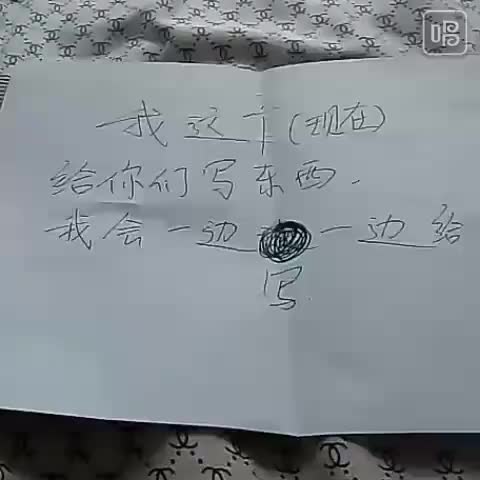 我这下(现在)
给你们写东西.
我会一边一边给
写